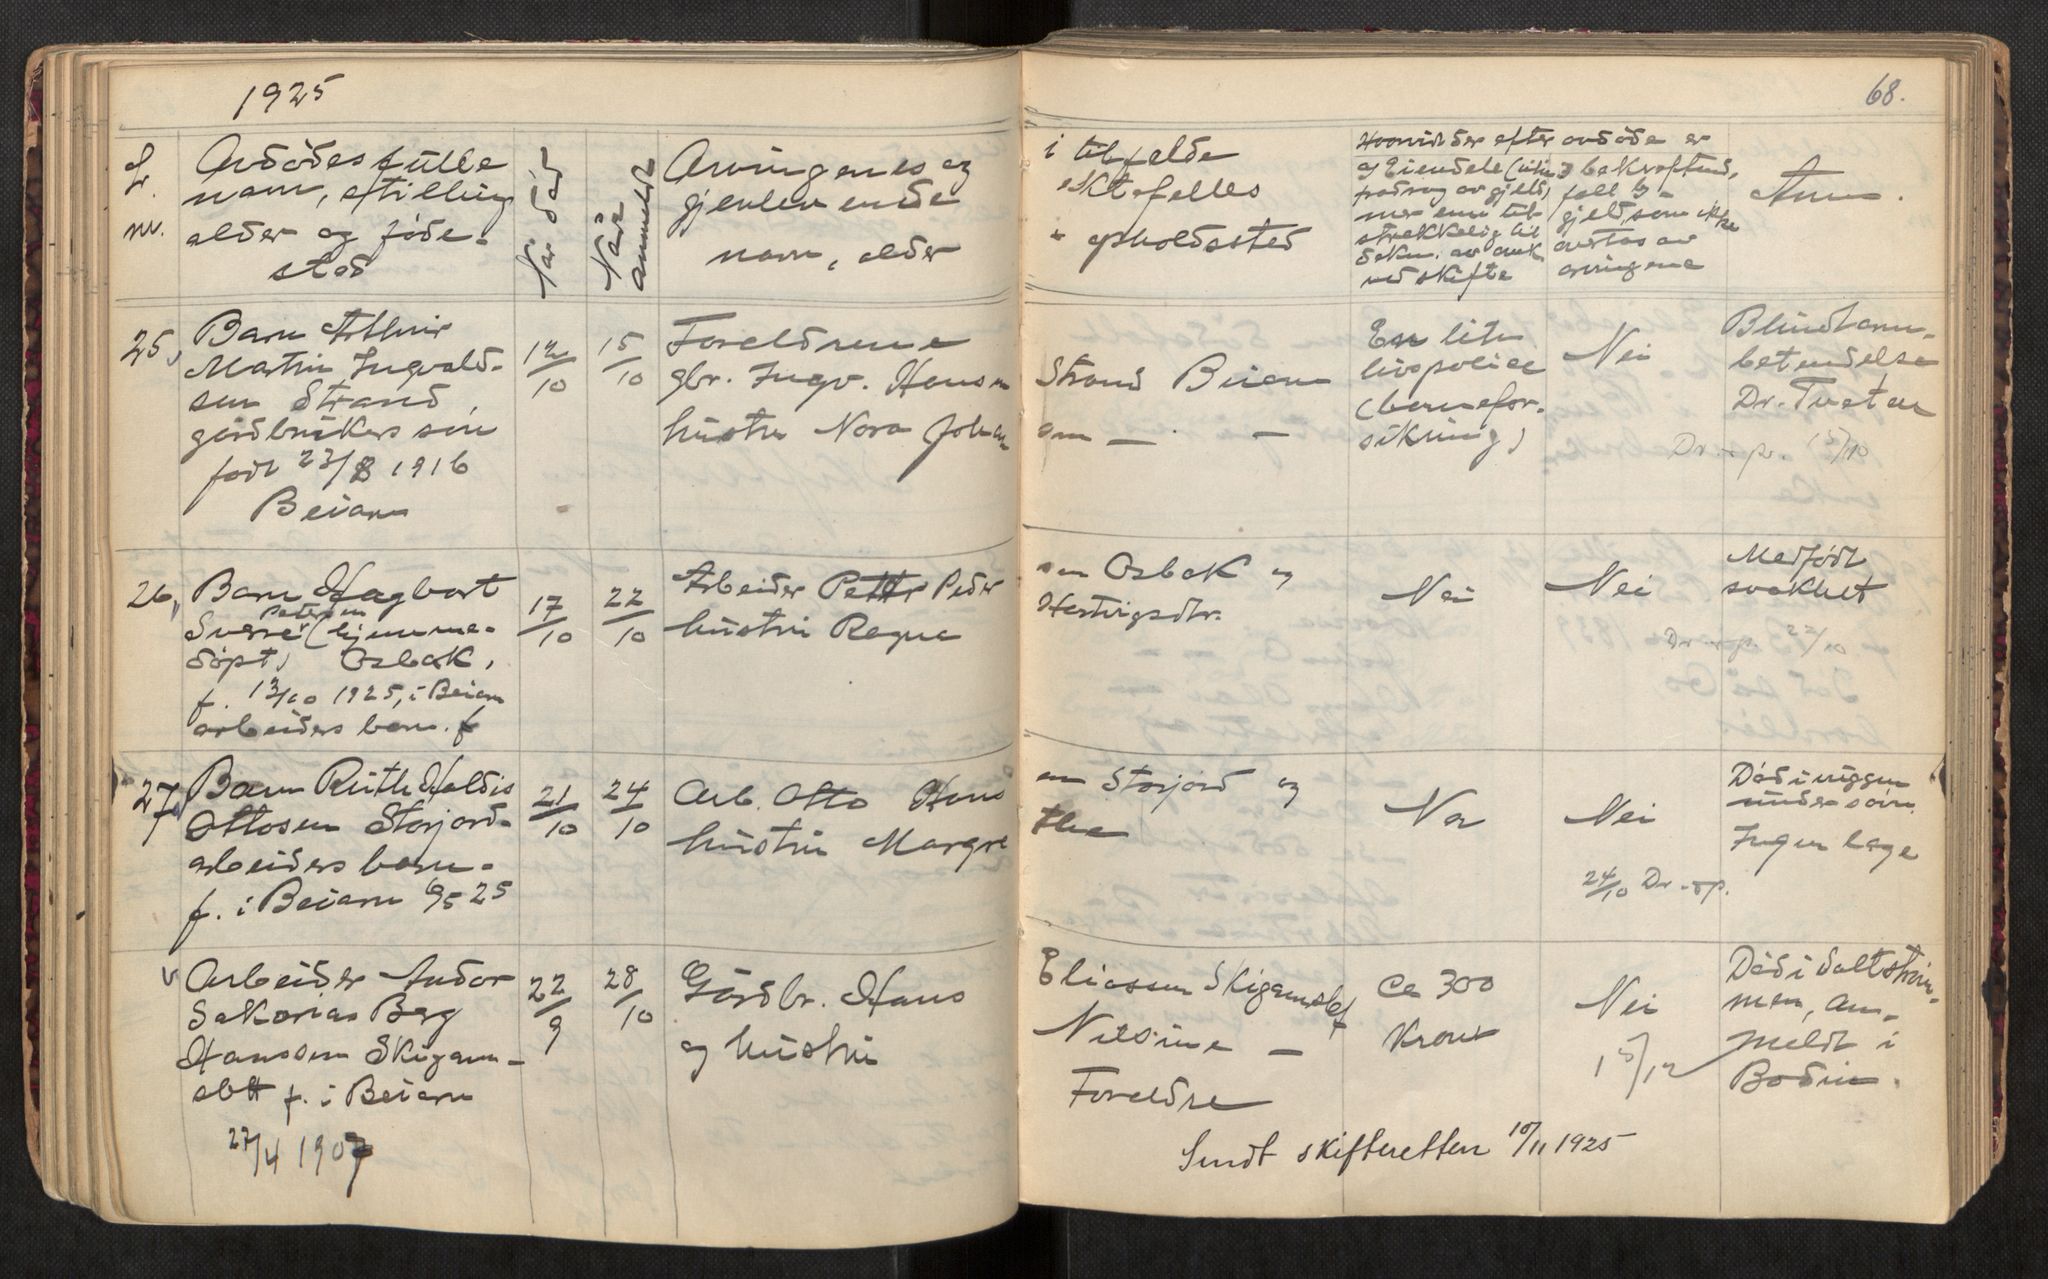 1925
68.
L.
nr.
Avdødes fulle
navn, stilling
alder og føde-
sted
Når død
Når
anmeldt
Arvingenes og
gjenlevende
navn, alder
i tilfelde
ektefelles
opholdssted
Hvorvidt der efter avdøde er
fradrag av gjeld)
mer enn til-
strekkelig til
dekn. av omk
ved skifte
gjeld, som ikke
overtas av
arvingene
Anm.
25,
Barn Arthur
Martin Ingvald-
sen Strand,
gårdbrukers søn
født 23/8 1916
Beiarn
12/10
15/10
Foreldrene
gbr. Ingv. Hansen
hustru Nora Johan
Strand Beiarn
sen — " —
En liten
livspolice
(barnefor-
sikring)
Nei
Blindtarm-
betendelse
Dr. Tveten
Dr. op. 15/10
26,
Barn Hagbart
Petersen
Sverre (hjemme-
døpt) Osbak,
f. 13/10 1925, i Beiarn
arbeiders barn. f
17/10
22/10
Arbeider Petter Peder
hustru Ragna
sen Osbak og
Hertvigsdtr.
Nei
Nei
Medfødt
svakhet
Dr. op. 22/10
27,
Barn Ruth Haldis
Ottosen Storjord-
arbeiders barn-
f. i Beiarn 9/5 25
21/10
24/10
Arb. Otto Hans
hustru Margre
en Storjord og
the
Nei
Nei
24/10 Dr. op.
Død i vuggen
under søvn
Ingen læge
v
Arbeider Andor
Sakarias Berg
Hanssen Skigam-
slett f. i Beiarn
27/4 1907
22/9
28/10
Gårdbr. Hans
og hustru
Eliassen Skigamslett
Nilsine —
Foreldre
Ca 300
Kroner
Nei
15/12
Død i Saltstrøm-
men, an-
meldt i
Bodin.
Sendt skifteretten 10/11 1925